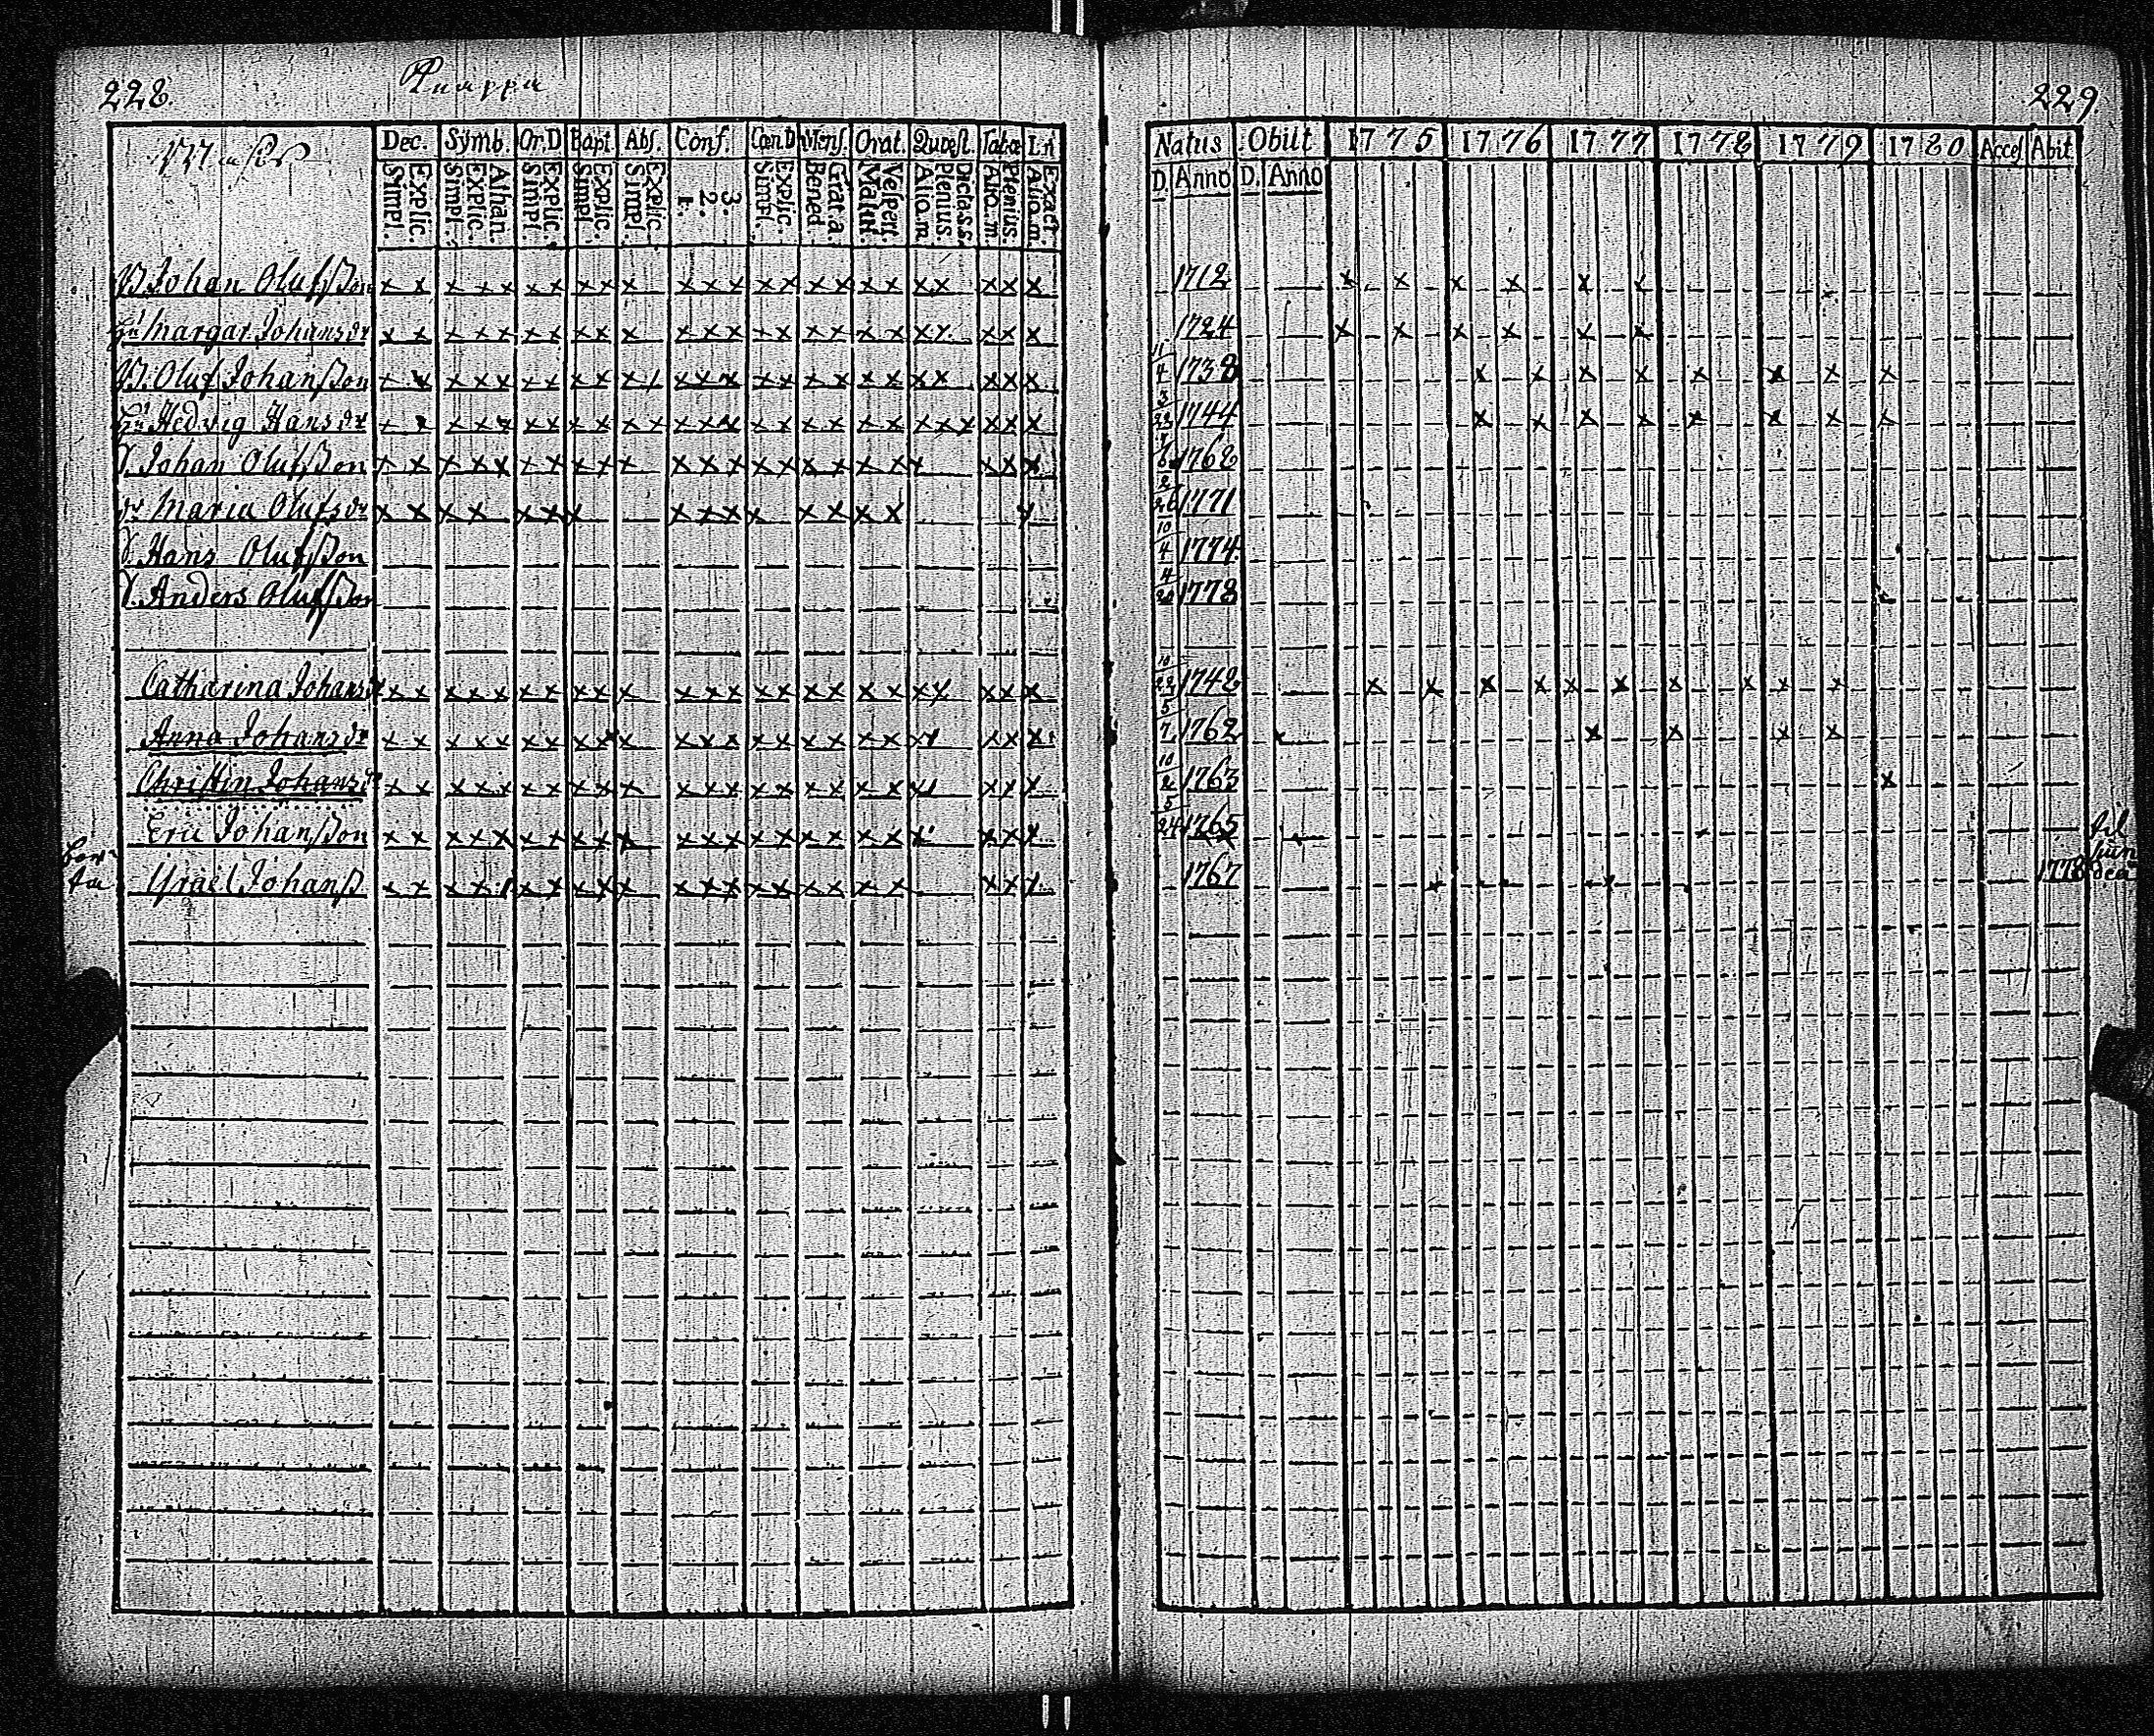 228.
229
Dec. Symb. Or.D Bapt. Abs. Conf. Cœn.D Mens. Orat. Quæst. Tabæ
Simpl. Explic. Simpl. Explic. Athan. Simpl. Explic. Simpl. Explic. Simpl. Explic. 1. 2. 3. Simpl. Explic. Bened. Grat. a. Matut. Vespert. Alio. m. Plenius. Dicta. s. s. Alio. m. Plenius. Alio. m. Exact.
Natus Obiit 1775 1776 1777 1778 1779 1780 Acces Abit
D. Anno D. Anno
Johan Olufsson 1712
Margar. Johansdr 1724
Oluf Johansson 11/4 1738
Hedvig Hansdr 3/23 1744
Johan Olufsson 1768
dr Maria Olufsdr 2/26 1771
Hans Olufsson 10/4 1774
Anders Olufsson 1778
Catharina Johansdr 10/22 1748
Anna Johansdr 5/7 1762
Christin Johansdr 10/2 1763
Eric Johansson 5/24 1765
Israel Johanss 1767 1778